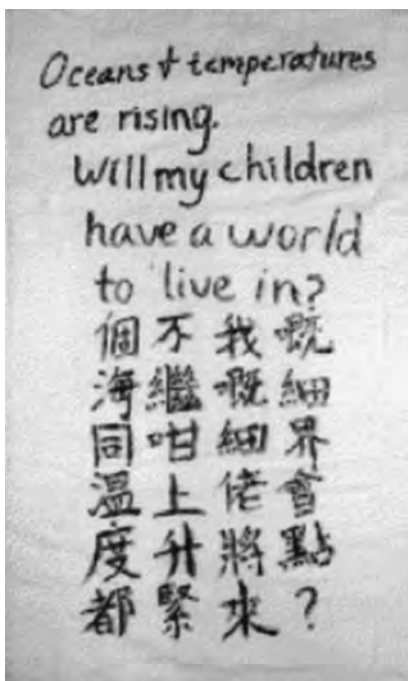 Oceans & temperatures
are rising.
Will my children
have a world
to live in?
個海同溫度都
不繼咁上升緊
我嘅細佬將來
嘅細界會點?